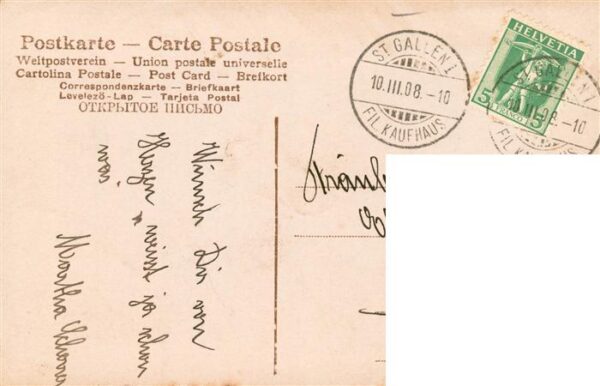 Postkarte — Carte Postale
Weltpostverein — Union postale universelle
Cartolina Postale — Post Card — Brefkort
Correspondenzkarte — Briefkaart
Levelező-Lap — Tarjeta Postal
ОТКРЫТОЕ ПИСЬМО
ST GALLEN 1
10.III.08.-10
FIL. KAUFHAUS
HELVETIA
5 FRANCO 5
ST GALLEN 1
10.III.08.-10
FIL. KAUFHAUS
Fräul
Wünsch Dir von
Herzen
Martha